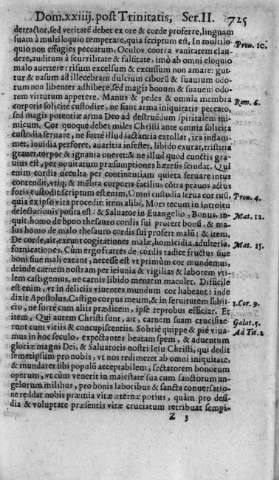 Dom. xxiiij. post Trinitatis, Ser. II. 725
detractor, sed veritatẽ debet ex ore & corde proferre, linguam
suam à multiloquio temperare, quia scriptum est, In multilo-
quio non effugies peccatum. Oculos contra vanitatem clau-
dere, auditum à scurrilitate & falsitate, imò ab omni eloquio
malo auertere: risum excelsum & excussum non amare: gu-
stum & nasum ad illecebram dulcium ciborũ & suauium odo-
rum non libenter adhibere, sed magis bonum & suauem odo-
rem virtutum appetere. Manus & pedes & omnia membra
corporis solicitè custodire, ne sunt arma iniquitatis peccato,
sed magis potentiæ arma Deo ad destruẽdum spiritalem ini-
micum. Cor quoque debet miles Christi ante omnia solicita
custodia seruare, ne fortè illud iactantia extollat, ira inflam-
met, inuidia perforet, auaritia infestet, libido exurat, tristitia
grauet, torpor & ignauia oneret &
uius est, per
enim cordis occulta per continentiam quieta seruare
contendis,
foris custodit scriptum est enim: Omni custodia serua cor tuũ,
quia ex ipso vita procedit: item alibi, Mors
delectationis posita est: & Saluator in Euangelio, Bonus, in-
quit homo de bono thesauro cordis sui profert bona, & ma-
lus homo de malo thesauro cordis sui profert mala: & item,
De corde, ait, exeunt cogitationes malæ, homicidia, adulteria,
fornicationes. Cùm ergo fructus siue
boni siue mali exeant, necesse est vt primùm cor mundemus,
deinde carnem nostram per ieiunia & vigilias & laborem vti-
lem castigemus, ne carnis libido mentem maculet. Difficile
est enim, vt in deliciis viuentes mundum cor habeant: inde
dixit Apostolus, Castigo corpus meum, & in seruitutem subii-
cio, ne fortè cum aliis prædicem, ipse reprobus efficiar. Et
item, Qui autem Christi sunt, ait, carnem suam crucifixe-
runt cum vitiis & concupiscentiis. Sobriè quippe & piè viua-
mus in hoc seculo, expectantes beatam spem, & aduentum
gloriæ magni Dei, & Saluatoris nostri Iesu Christi, qui dedit
semetipsum pro nobis, vt nos redimeret ab omni iniquitate,
& mundaret sibi populũ acceptabilem, sectatorem bonorum
operum, vt cùm venerit in maiestate sua cum sanctorum an-
gelorum milibus, pro bonis laboribus & sancta conuersatio-
ne reddat nobis præmia vitæ æternæ potius, quàm pro desi-
dia & voluptate præsentis vitæ cruciatum retribuat sempi-
Z 3
Prou. 10.
Rom. 6.
Prou. 4.
Mat. 12.
Mat. 15.
1. Cor. 9.
Galat. 5.
Ad Tit. 2.